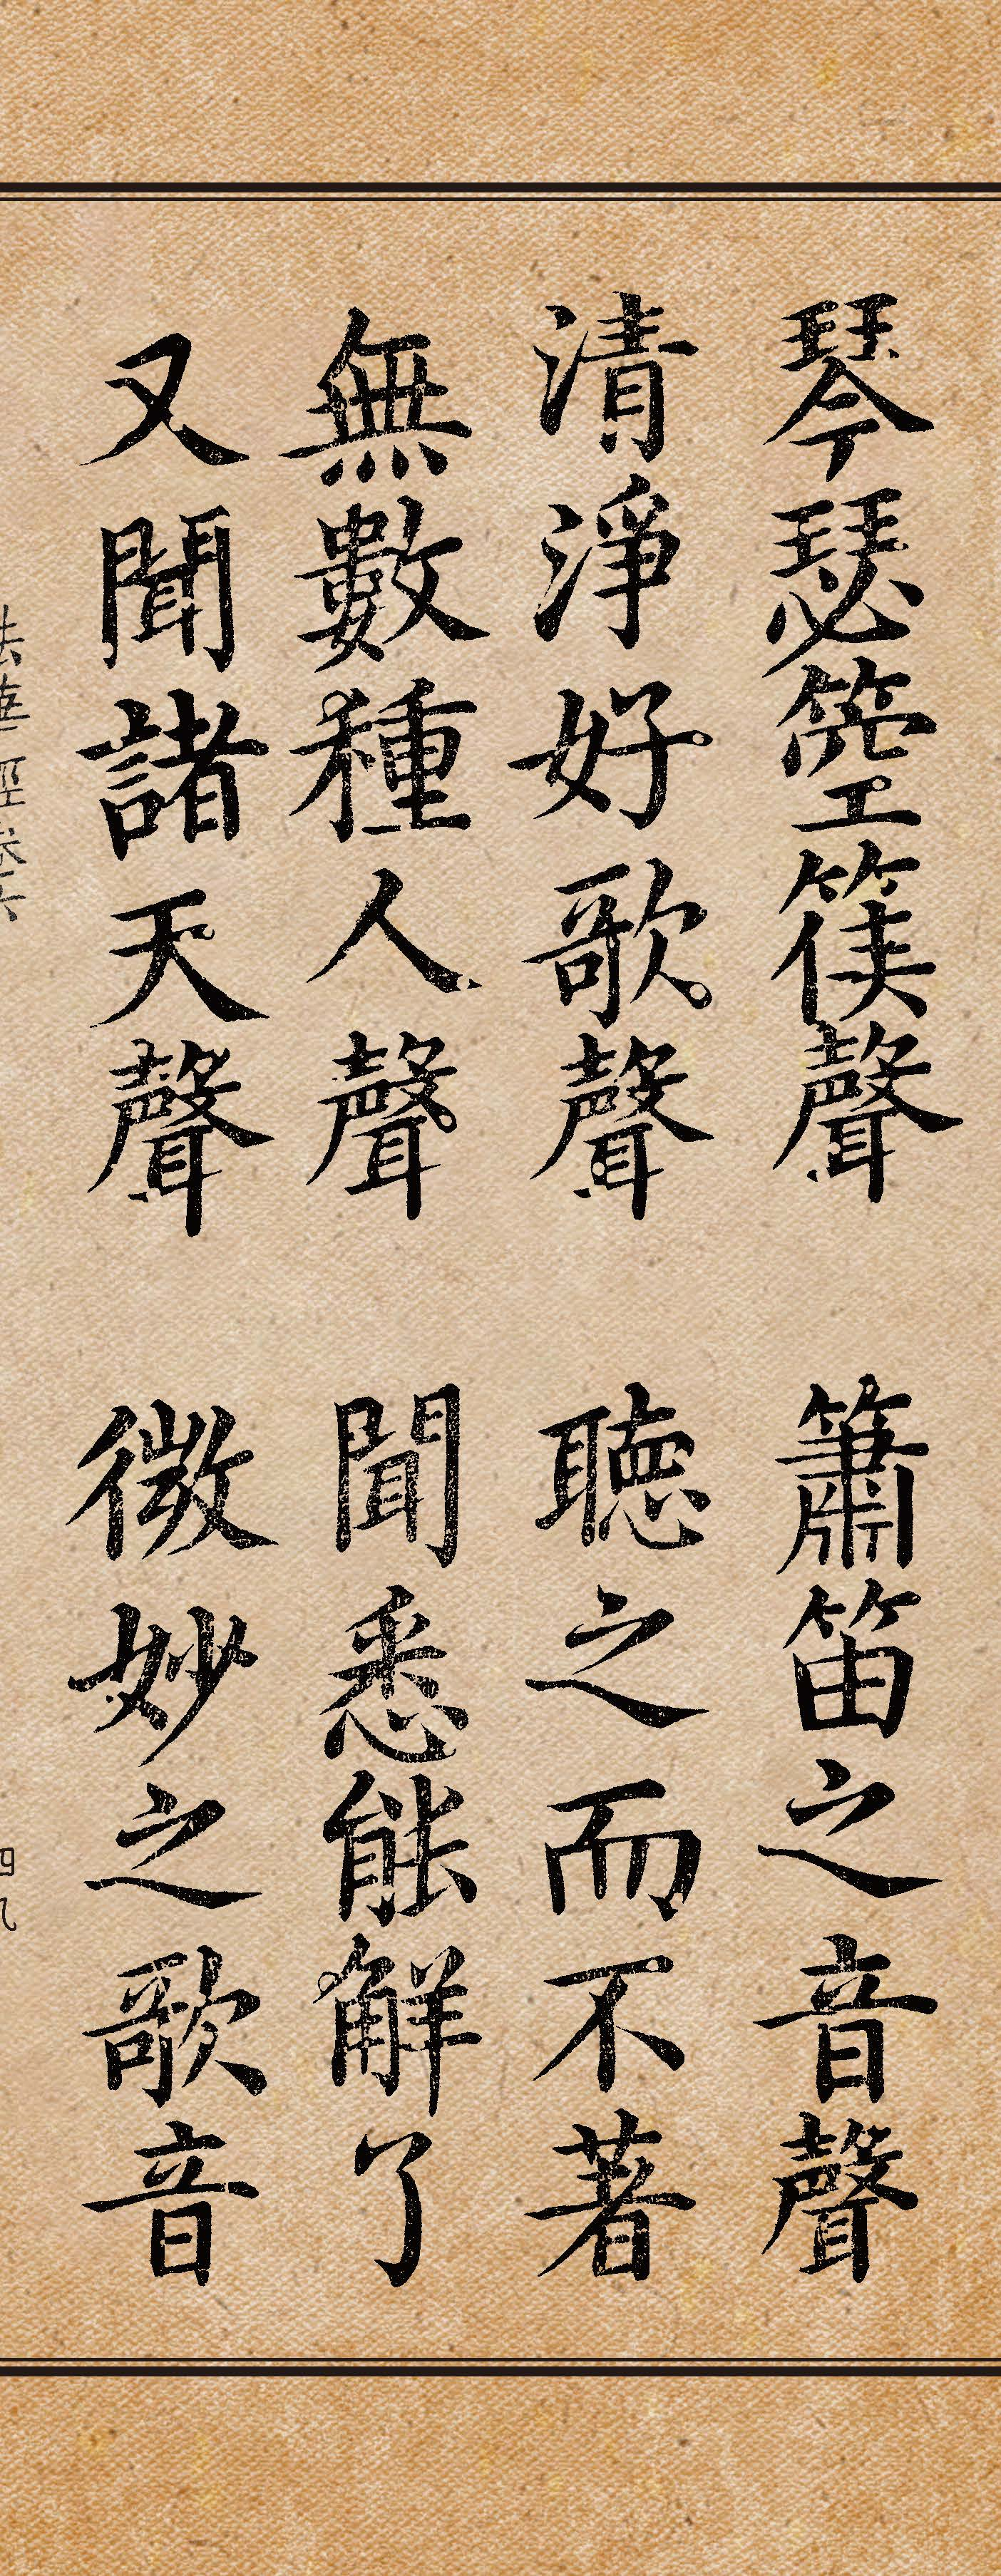 琴瑟箜篌聲 簫笛之音聲
清淨好歌聲 聽之而不著
無數種人聲 聞悉能解了
又聞諸天聲 微妙之歌音